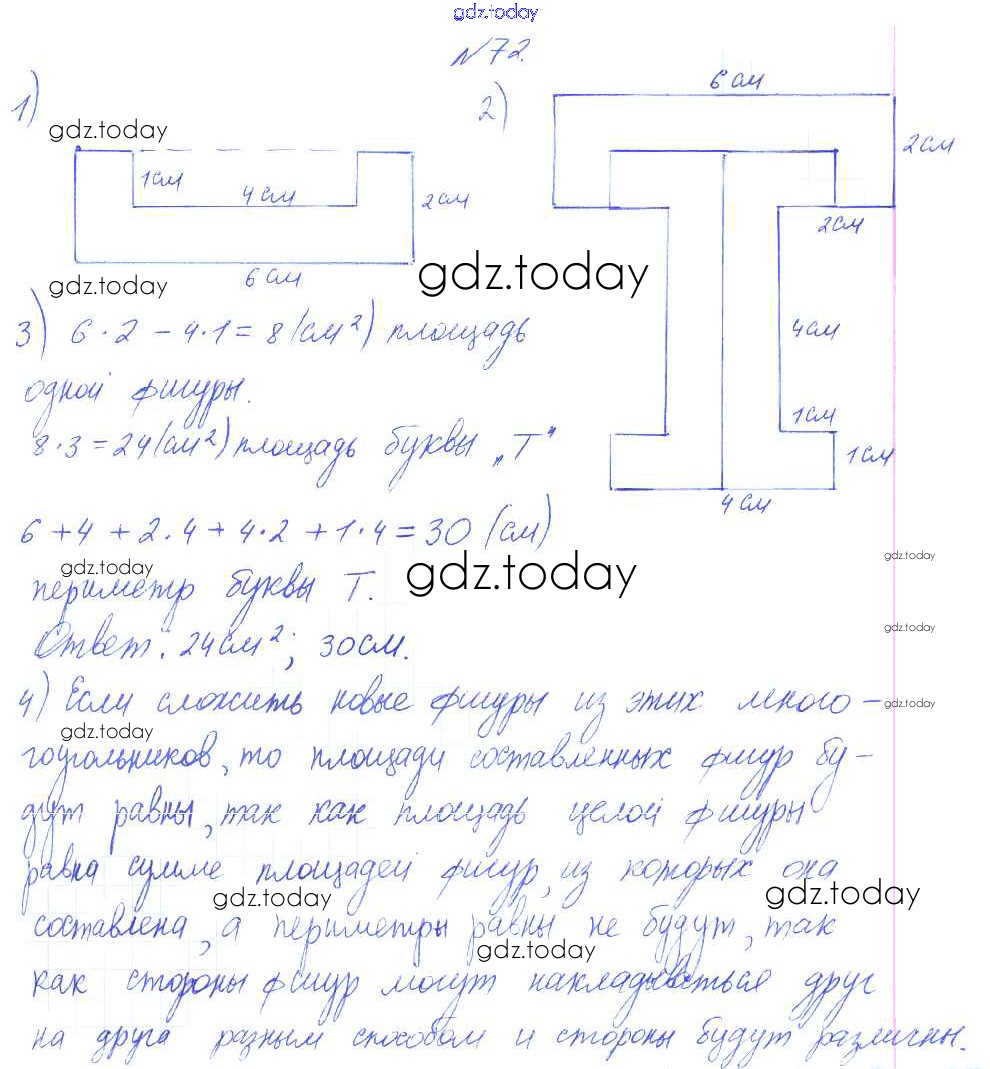 gdz.today
№72.
1)
2)
6 см
gdz.today
2 см
1 см
4 см
2 см
2 см
6 см
gdz.today
gdz.today
4 см
1 см
1 см
4 см
3) 6 · 2 - 4 · 1 = 8 (см²) площадь
одной фигуры.
8 · 3 = 24 (см²) площадь буквы „Т"
6 + 4 + 2 · 4 + 4 · 2 + 1 · 4 = 30 (см)
gdz.today
gdz.today
gdz.today
периметр буквы Т.
gdz.today
Ответ: 24 см²; 30 см.
4) Если сложить новые фигуры из этих много-
gdz.today
gdz.today
гоугольников, то площади составленных фигур бу-
дут равны, так как площадь целой фигуры
равна сумме площадей фигур, из которых она
gdz.today
gdz.today
составлена, а периметры равны не будут, так
gdz.today
как стороны фигур могут накладываться друг
на друга разным способом и стороны будут различны.